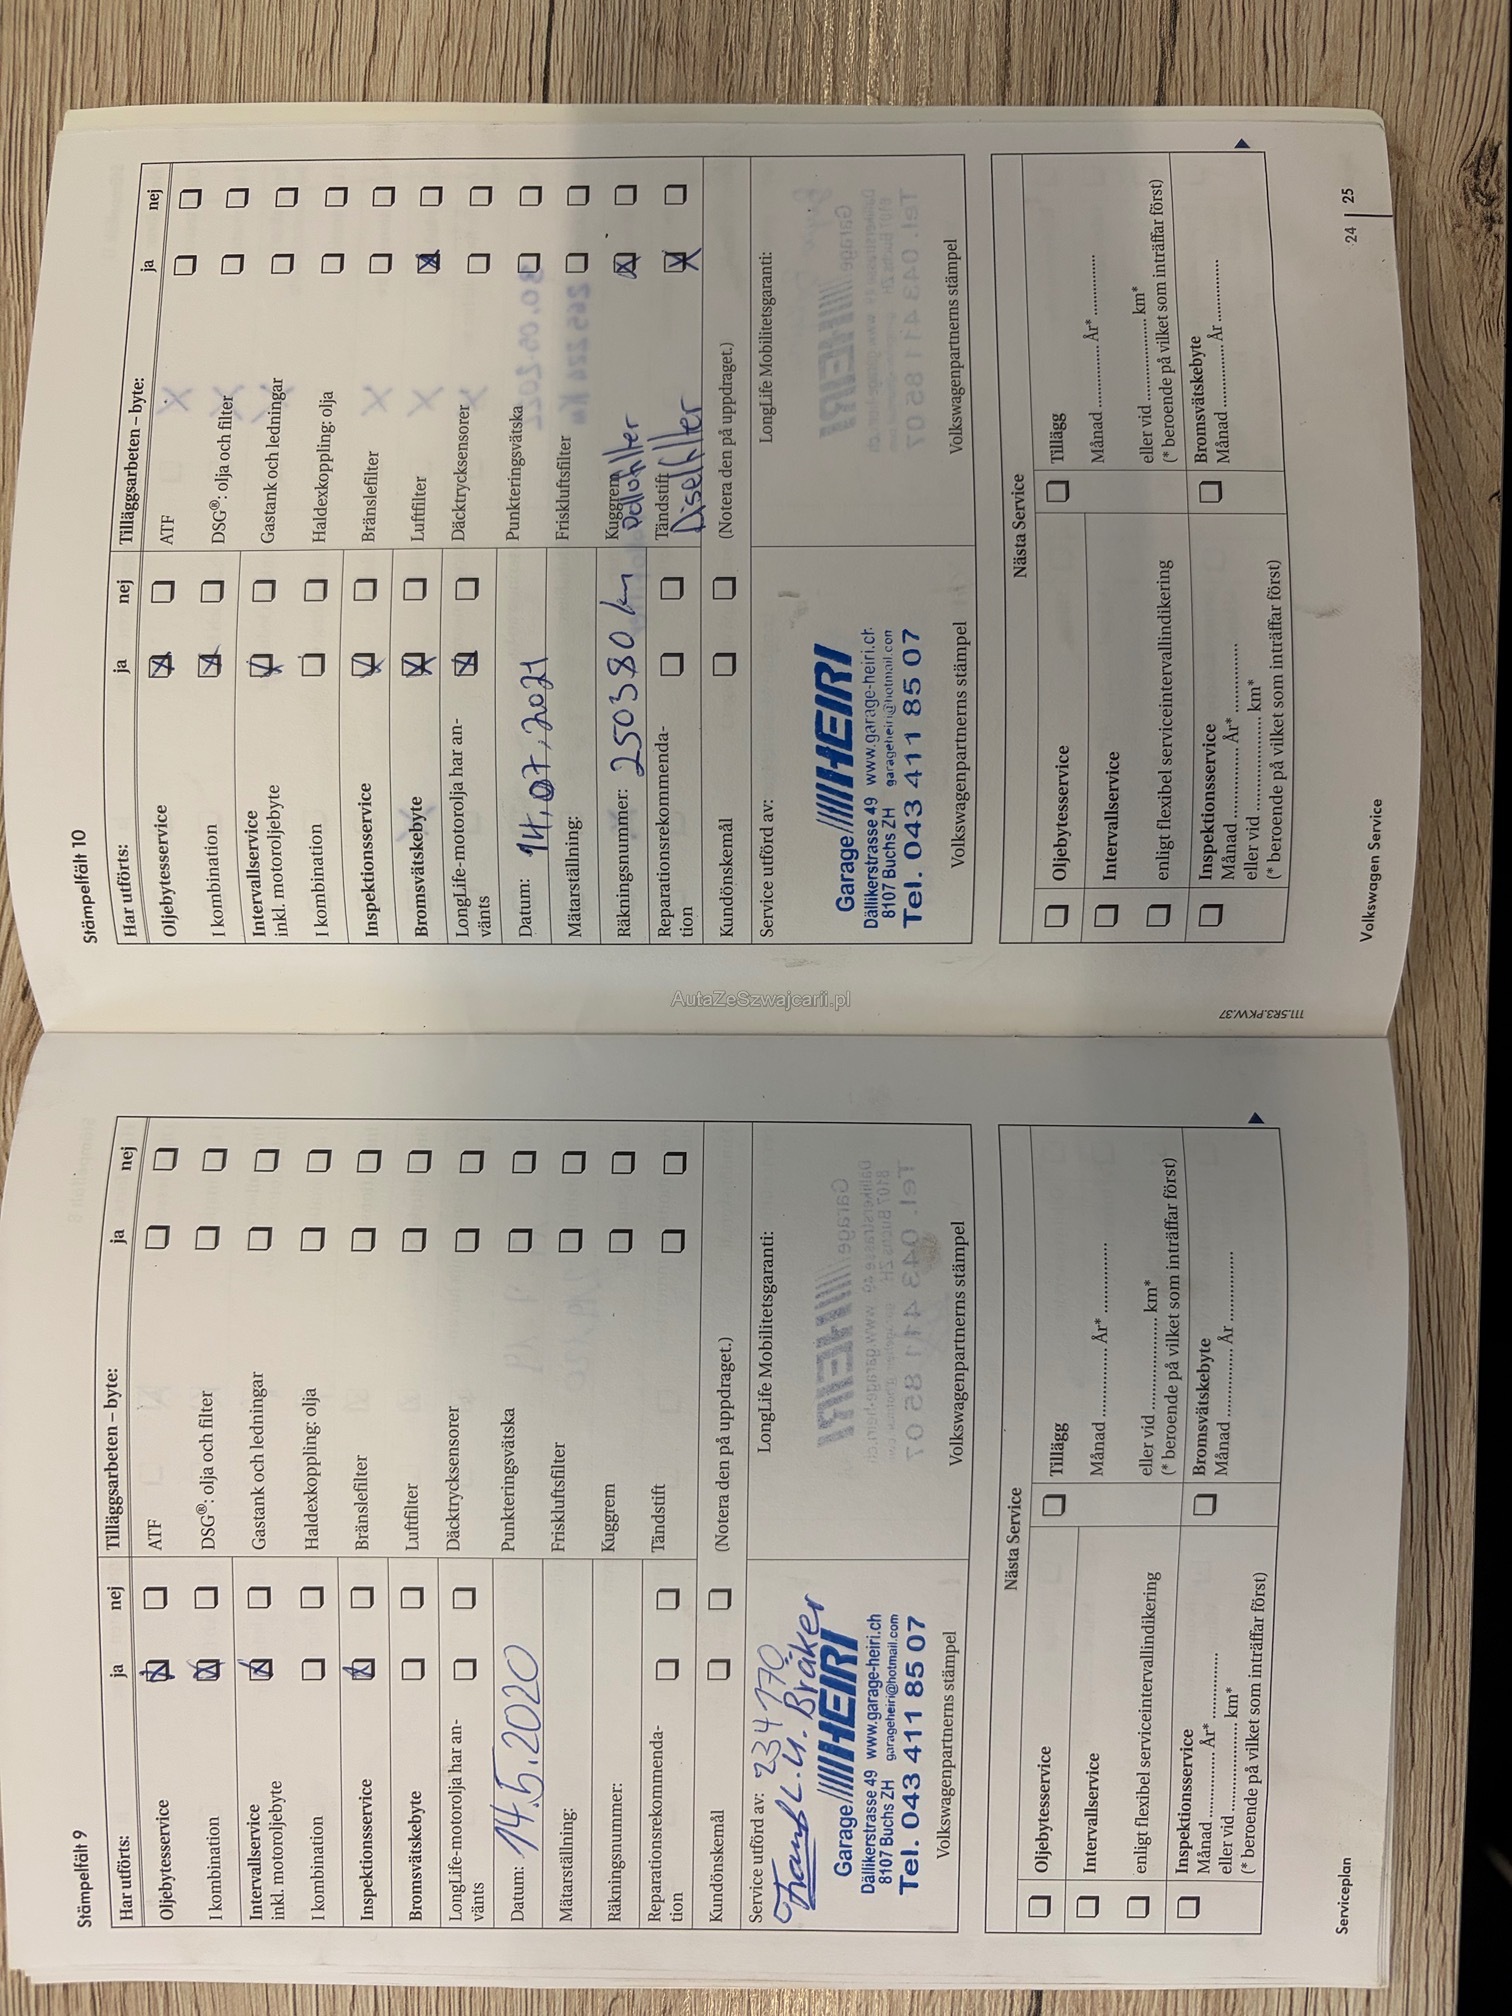 Stämpelfält 9
Har utförts: ja nej Tilläggsarbeten – byte: ja nej
Oljebytesservice ATF
I kombination DSG®: olja och filter
Intervallservice Gastank och ledningar
inkl. motoroljebyte
I kombination Haldexkoppling: olja
Inspektionsservice Bränslefilter
Bromsvätskebyte Luftfilter
LongLife-motorolja har an- Däcktrycksensorer
vänts
Datum: 14.5.2020 Punkteringsvätska
Mätarställning: Friskluftsfilter
Räkningsnummer: Kuggrem
Reparationsrekommenda- Tändstift
tion
Kundönskemål (Notera den på uppdraget.)
Service utförd av: 234170 LongLife Mobilitetsgaranti:
L.U. Bräker
Garage HEIRI
Dällikerstrasse 49 www.garage-heiri.ch
8107 Buchs ZH garageheiri@hotmail.com
Tel. 043 411 85 07
Volkswagenpartnerns stämpel Volkswagenpartnerns stämpel
Nästa Service
Oljebytesservice Tillägg
Intervallservice Månad ............... År* ...............
enligt flexibel serviceintervallindikering eller vid ............... km*
(* beroende på vilket som inträffar först)
Inspektionsservice Bromsvätskebyte
Månad ............... År* ............... Månad ............... År ...............
eller vid ............... km*
(* beroende på vilket som inträffar först)
Serviceplan
Stämpelfält 10
Har utförts: ja nej Tilläggsarbeten – byte: ja nej
Oljebytesservice ATF
I kombination DSG®: olja och filter
Intervallservice Gastank och ledningar
inkl. motoroljebyte
I kombination Haldexkoppling: olja
Inspektionsservice Bränslefilter
Bromsvätskebyte Luftfilter
LongLife-motorolja har an- Däcktrycksensorer
vänts
Datum: 14.07.2021 Punkteringsvätska
Mätarställning: Friskluftsfilter
Räkningsnummer: 250380 km Kuggrem
Reparationsrekommenda- Tändstift Diselfilter
tion
Kundönskemål (Notera den på uppdraget.)
Service utförd av: LongLife Mobilitetsgaranti:
Garage HEIRI
Dällikerstrasse 49 www.garage-heiri.ch
8107 Buchs ZH garageheiri@hotmail.com
Tel. 043 411 85 07
Volkswagenpartnerns stämpel Volkswagenpartnerns stämpel
Nästa Service
Oljebytesservice Tillägg
Intervallservice Månad ............... År* ...............
enligt flexibel serviceintervallindikering eller vid ............... km*
(* beroende på vilket som inträffar först)
Inspektionsservice Bromsvätskebyte
Månad ............... År* ............... Månad ............... År ...............
eller vid ............... km*
(* beroende på vilket som inträffar först)
Volkswagen Service 24 | 25
111.5R3.PKW.37
AutaZeSzwajcarii.pl